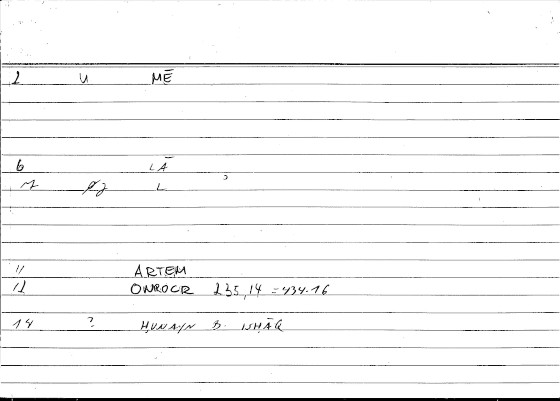 1 U MĒ
6 LĀ
L
11 ARTEM
12 ONROCR 235,14 = 434.16
14 ? ḤUNAYN B. ISḤĀQ